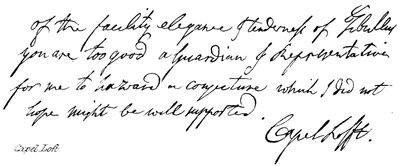 of the facility elegance & tenderness of Tibullus
you are too good a Guardian & Representative
for me to hazard a conjecture which I did not
hope might be well supported.
Capel Lofft.
Capel Loft